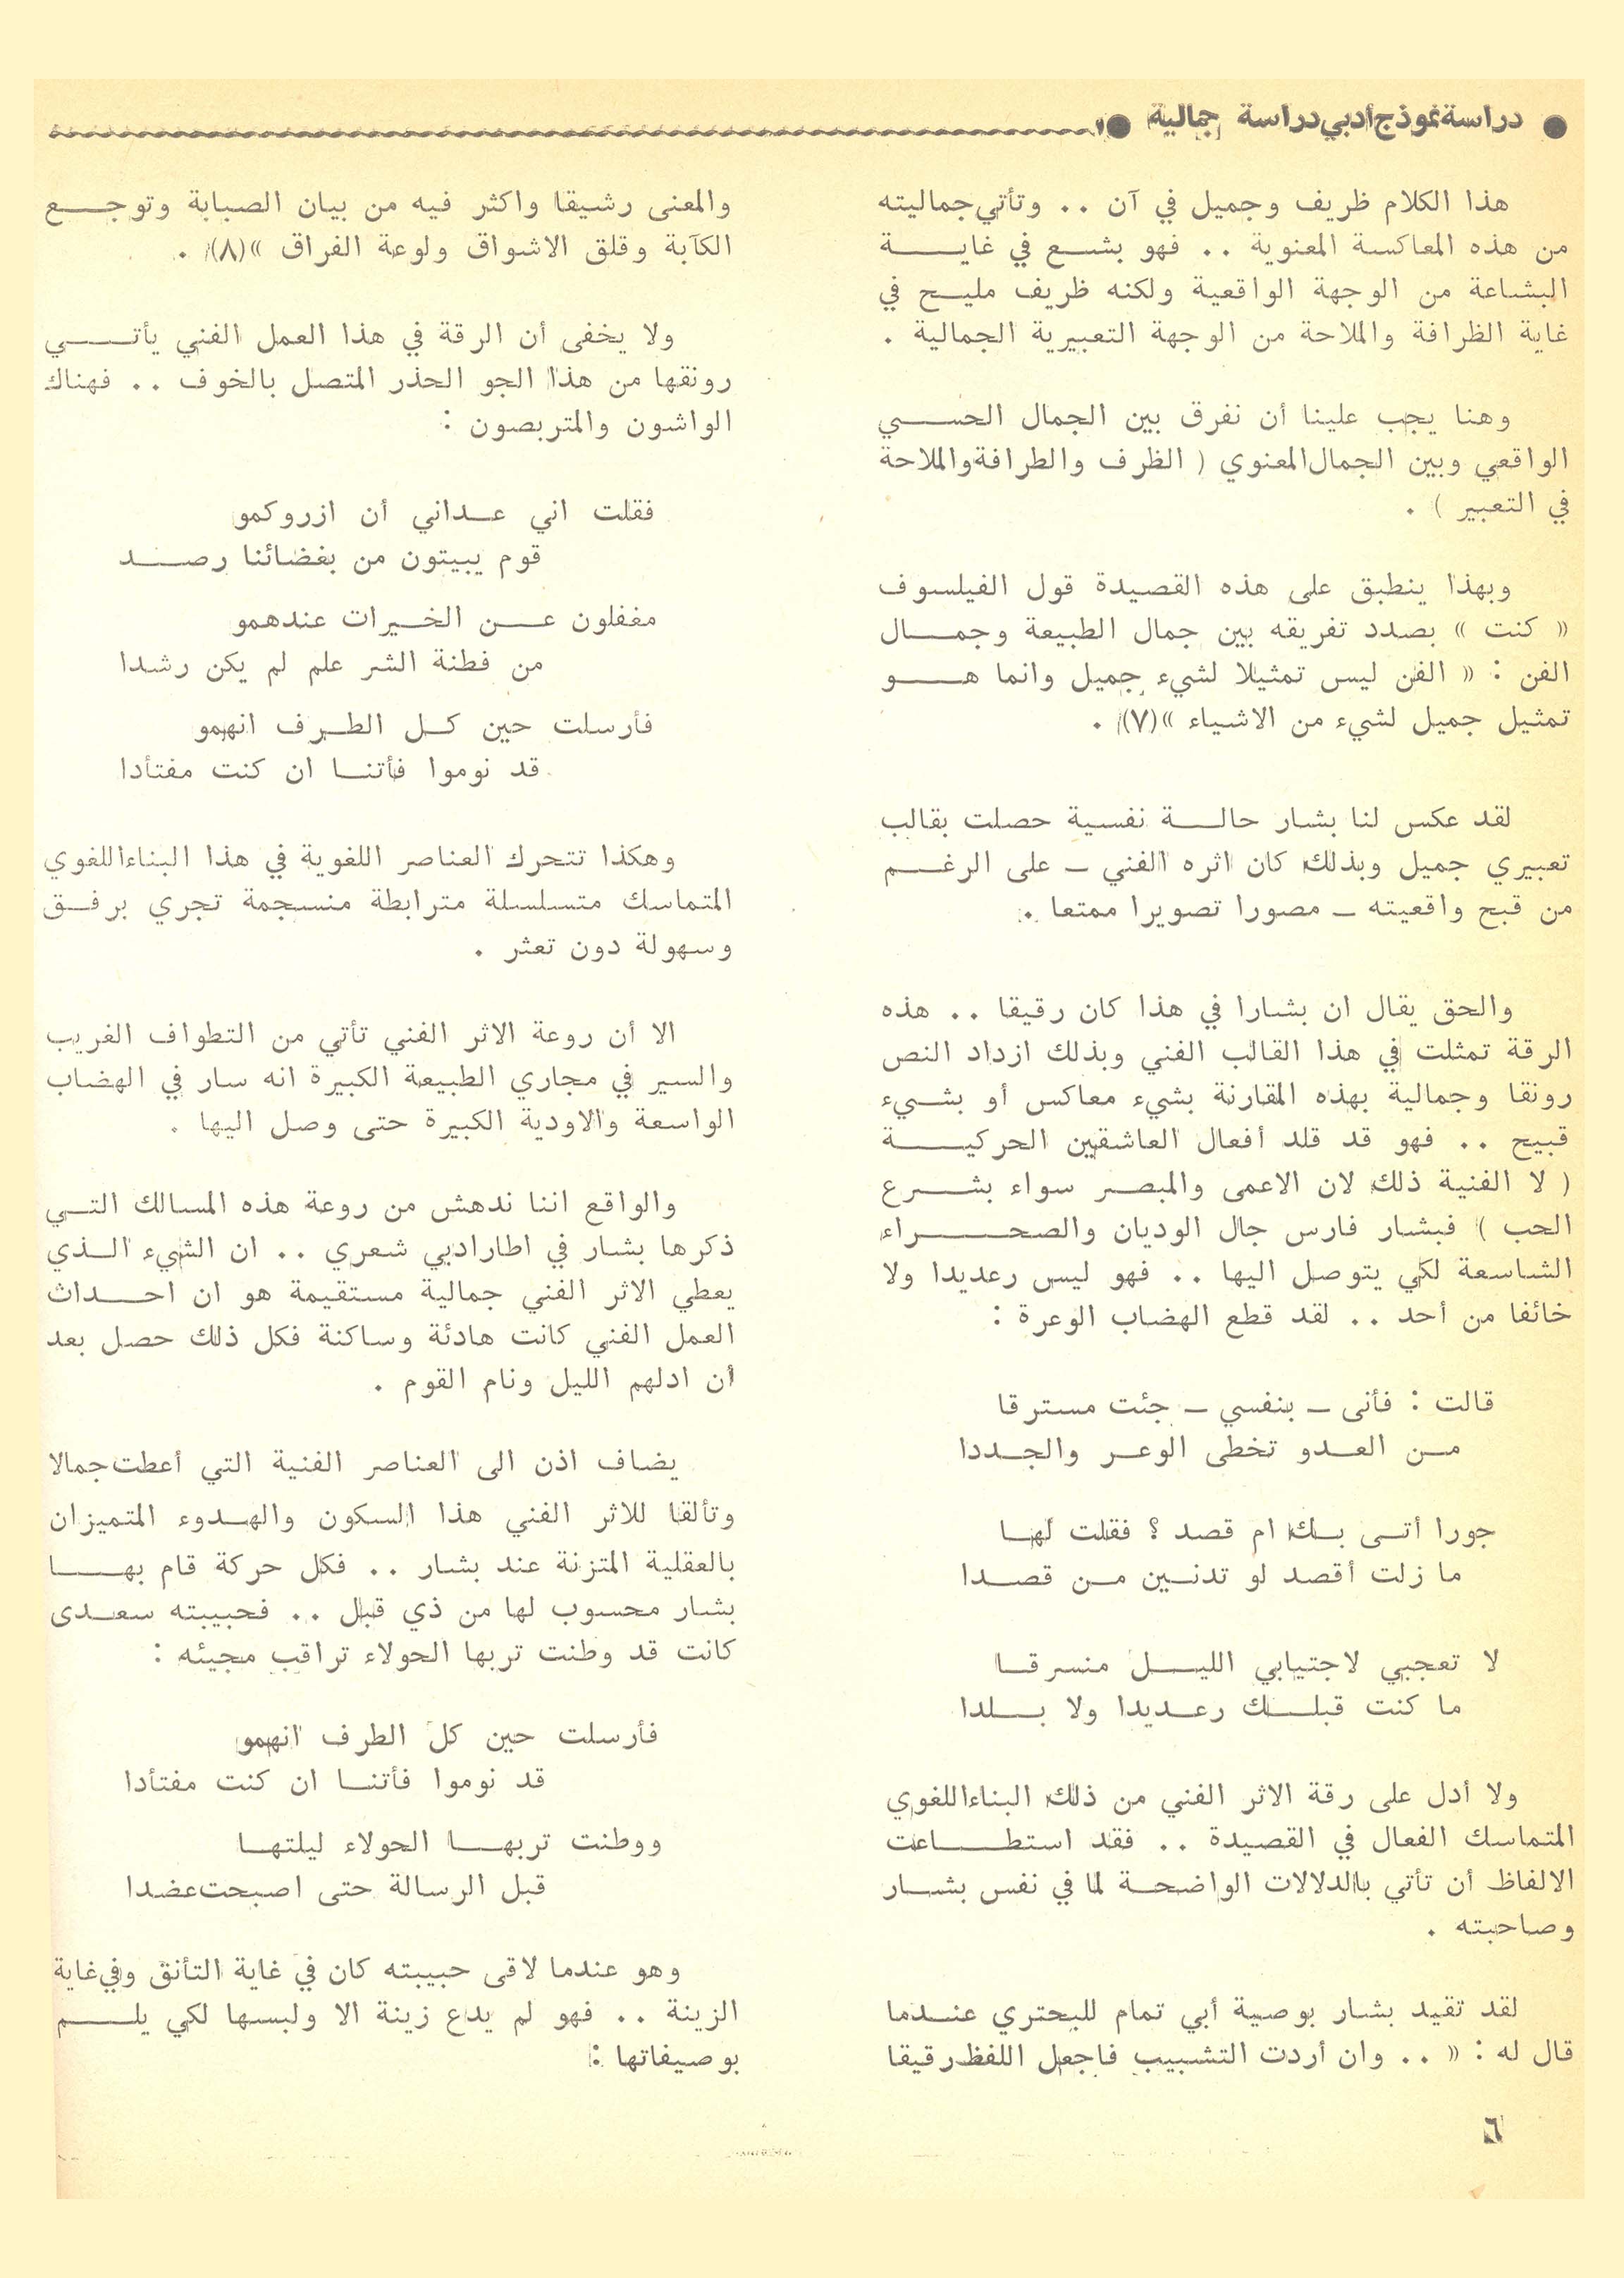 ● دراسة نموذج أدبي دراسة جمالية ●
هذا الكلام ظريف وجميل في آن .. وتأتي جماليته
من هذه المعاكسة المعنوية .. فهو بشع في غاية
البشاعة من الوجهة الواقعية ولكنه ظريف مليح في
غاية الظرافة والملاحة من الوجهة التعبيرية الجمالية .
وهنا يجب علينا أن نفرق بين الجمال الحسي
الواقعي وبين الجمال المعنوي ( الظرف والطرافة والملاحة
في التعبير ) .
وبهذا ينطبق على هذه القصيدة قول الفيلسوف
« كنت » بصدد تفريقه بين جمال الطبيعة وجمال
الفن : « الفن ليس تمثيلا لشيء جميل وانما هو
تمثيل جميل لشيء من الاشياء »(٧) .
لقد عكس لنا بشار حالة نفسية حصلت بقالب
تعبيري جميل وبذلك كان اثره الفني ـ على الرغم
من قبح واقعيته ـ مصورا تصويرا ممتعا .
والحق يقال ان بشارا في هذا كان رقيقا .. هذه
الرقة تمثلت في هذا القالب الفني وبذلك ازداد النص
رونقا وجمالية بهذه المقارنة بشيء معاكس أو بشيء
قبيح .. فهو قد قلد أفعال العاشقين الحركية
( لا الفنية ذلك لان الاعمى والمبصر سواء بشرع
الحب ) فبشار فارس جال الوديان والصحراء
الشاسعة لكي يتوصل اليها .. فهو ليس رعديدا ولا
خائفا من أحد .. لقد قطع الهضاب الوعرة :
قالت : فأنى ـ بنفسي ـ جئت مسترقا
من العدو تخطى الوعر والجددا
جورا أتى بك ام قصد ؟ فقلت لها
ما زلت أقصد لو تدنين من قصدا
لا تعجبي لاجتيابي الليل منسرقا
ما كنت قبلك رعديدا ولا بلدا
ولا أدل على رقة الاثر الفني من ذلك البناء اللغوي
المتماسك الفعال في القصيدة .. فقد استطاعت
الالفاظ أن تأتي بالدلالات الواضحة لما في نفس بشار
وصاحبته .
لقد تقيد بشار بوصية أبي تمام للبحتري عندما
قال له : « .. وان أردت التشبيب فاجعل اللفظ رقيقا
والمعنى رشيقا واكثر فيه من بيان الصبابة وتوجع
الكآبة وقلق الاشواق ولوعة الفراق »(٨) .
ولا يخفى أن الرقة في هذا العمل الفني يأتي
رونقها من هذا الجو الحذر المتصل بالخوف .. فهناك
الواشون والمتربصون :
فقلت اني عداني أن ازروكمو
قوم يبيتون من بغضائنا رصد
مغفلون عن الخيرات عندهمو
من فطنة الشر علم لم يكن رشدا
فأرسلت حين كل الطرف انهمو
قد نوموا فأتنا ان كنت مفتأدا
وهكذا تتحرك العناصر اللغوية في هذا البناء اللغوي
المتماسك متسلسلة مترابطة منسجمة تجري برفق
وسهولة دون تعثر .
الا أن روعة الاثر الفني تأتي من التطواف الغريب
والسير في مجاري الطبيعة الكبيرة انه سار في الهضاب
الواسعة والاودية الكبيرة حتى وصل اليها .
والواقع اننا ندهش من روعة هذه المسالك التي
ذكرها بشار في اطار ادبي شعري .. ان الشيء الذي
يعطي الاثر الفني جمالية مستقيمة هو ان احداث
العمل الفني كانت هادئة وساكنة فكل ذلك حصل بعد
أن ادلهم الليل ونام القوم .
يضاف اذن الى العناصر الفنية التي أعطت جمالا
وتألقا للاثر الفني هذا السكون والهدوء المتميزان
بالعقلية المتزنة عند بشار .. فكل حركة قام بها
بشار محسوب لها من ذي قبل .. فحبيبته سعدى
كانت قد وطنت تربها الحولاء تراقب مجيئه :
فأرسلت حين كل الطرف انهمو
قد نوموا فأتنا ان كنت مفتأدا
ووطنت تربها الحولاء ليلتها
قبل الرسالة حتى اصبحت عضدا
وهو عندما لاقى حبيبته كان في غاية التأنق وفي غاية
الزينة .. فهو لم يدع زينة الا ولبسها لكي يلم
بوصيفاتها :
٦